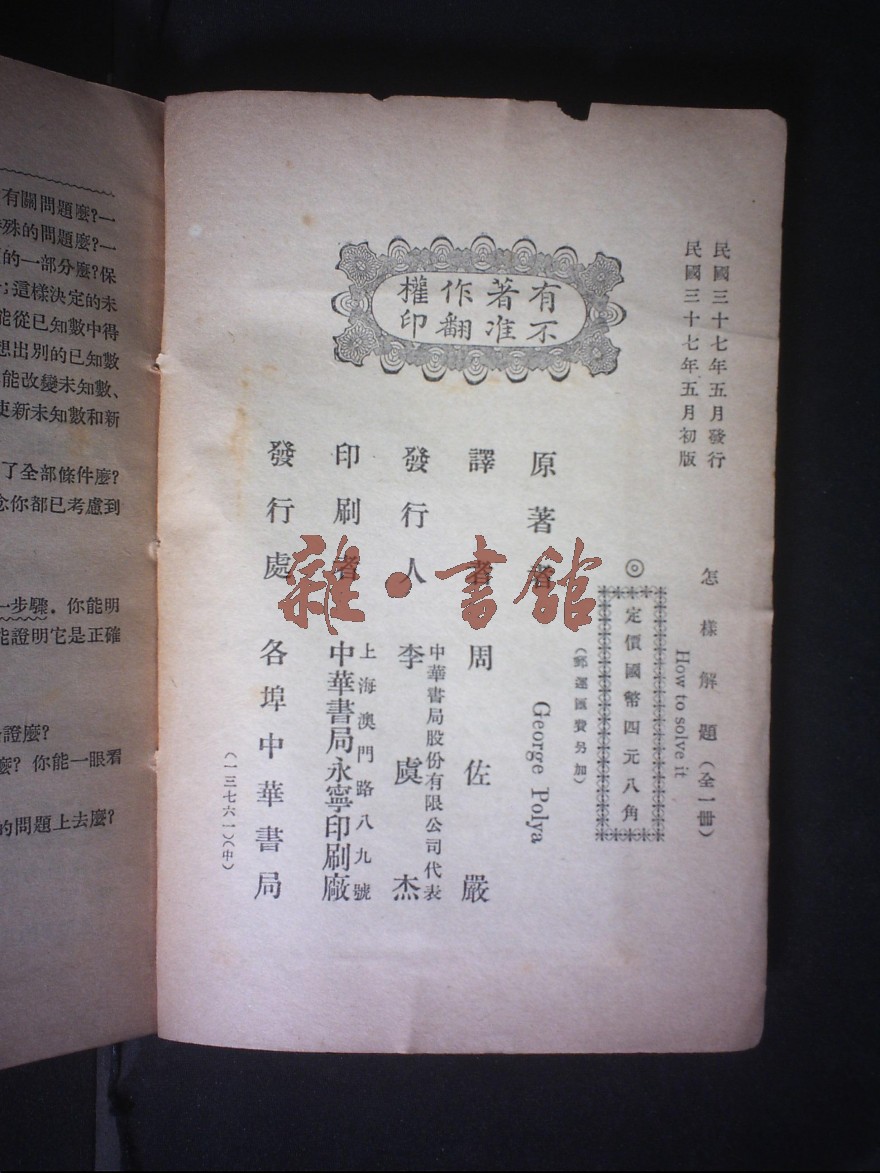 民國三十七年五月發行
民國三十七年五月初版
怎樣解題（全一冊）
How to solve it
◎定價國幣四元八角
（郵運匯費另加）
有不著准作翻權印
原著者 George Polya
譯者 周佐嚴
發行人 李虞杰
中華書局股份有限公司代表
印刷者 中華書局永寧印刷廠
上海澳門路八九號
發行處 各埠中華書局
（一三七六一）（中）
雜·書館
有關問題麼？—
殊的問題麼？—
的一部分麼？保
；這樣決定的未
能從已知數中得
想出別的已知數
能改變未知數、
使新未知數和新
了全部條件麼？
念你都已考慮到
一步驟．你能明
能證明它是正確
證麼？
麼？你能一眼看
的問題上去麼？